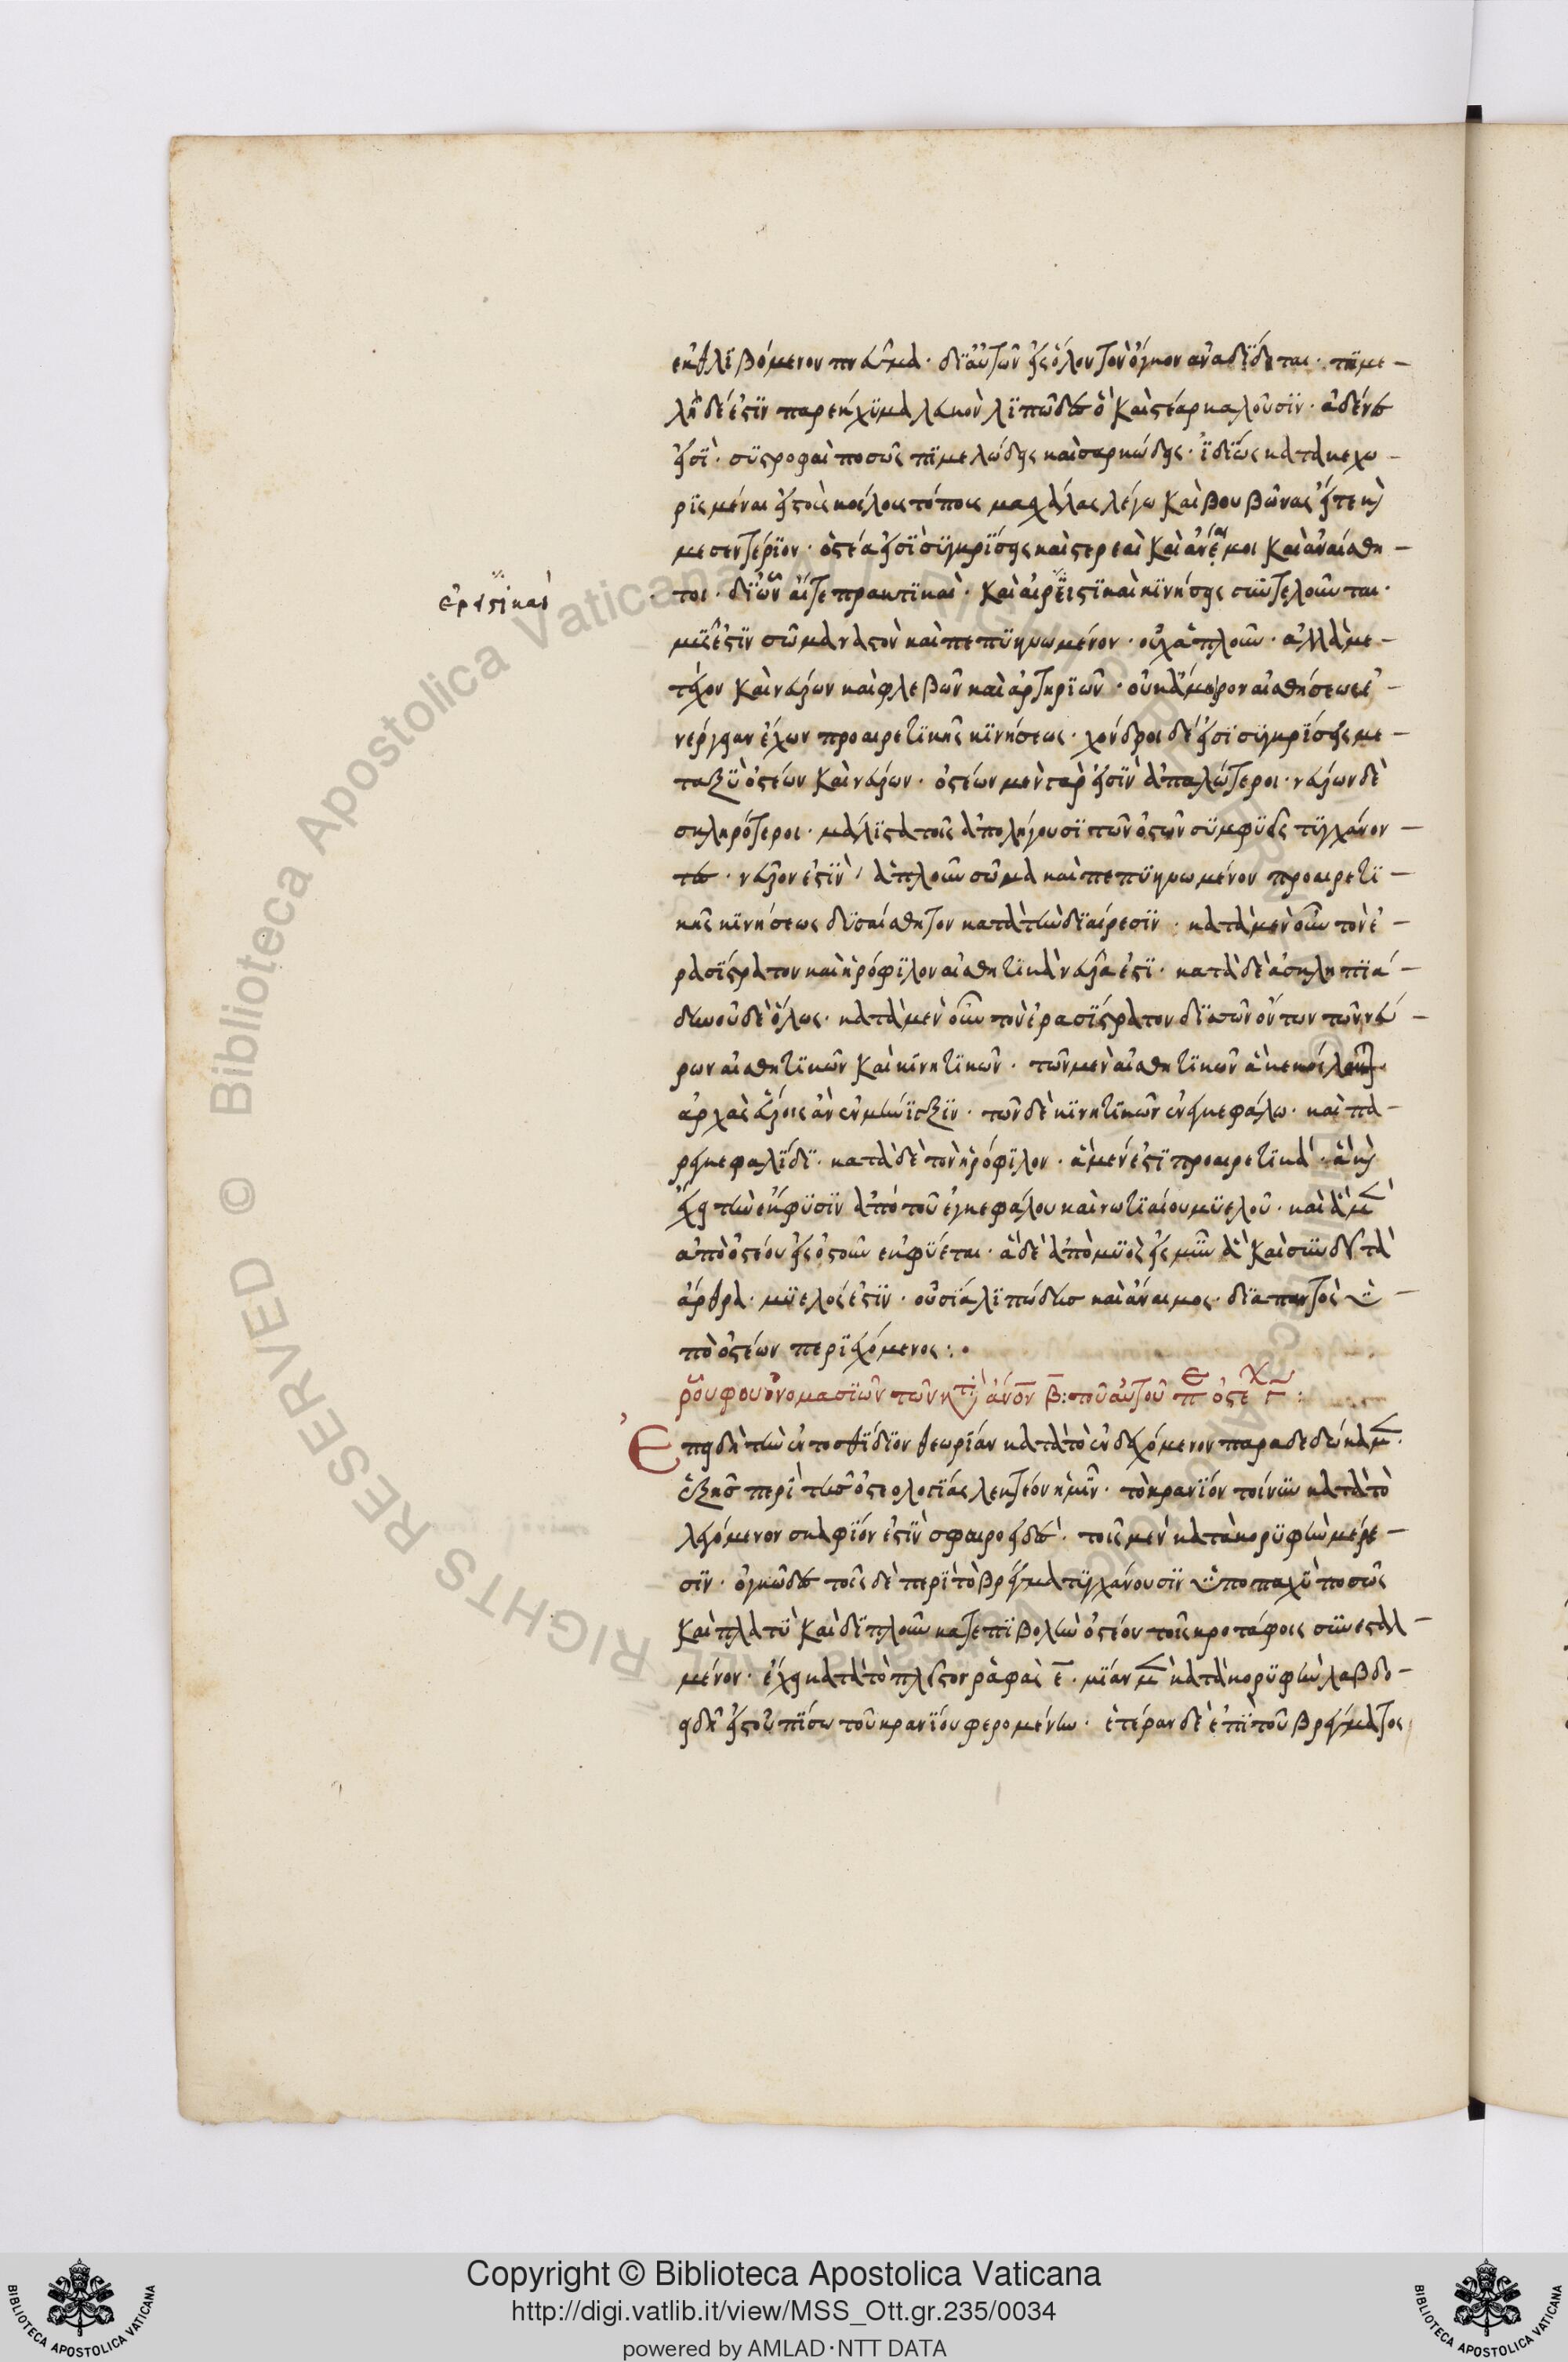 ἐκθλιβόμενον πνεῦμα· δι' αὐτῶν εἰς ὅλον τὸν ὄγκον ἀναδίδοται· πιμε-
λὴ δέ ἐστιν παρέγχυμα λευκὸν λιπῶδες ὃ καὶ στέαρ καλοῦσιν· ἀδένες
εἰσὶ· συστροφαὶ ποσῶς πιμελώδεις καὶ σαρκώδεις· ἰδίως κατακεχω-
ρισμέναι εἰς τοὺς κοίλους τόπους μασχάλας λέγω καὶ βουβῶνας ἔτι καὶ
μεσεντέριον· ὀστέα εἰσὶ συγκρίσεις καὶ στερεαὶ καὶ ἄναιμοι καὶ ἀναίσθη-
τοι· δι' ὧν αἵ τε πρακτικαὶ· καὶ κινήσεις συντελοῦνται·
ἐρειστικαὶ
μῦς ἐστιν σῶμα ναστὸν καὶ πεπυκνωμένον· οὐχ ἁπλοῦν· ἀλλὰ με-
τέχον καὶ νεύρων καὶ φλεβῶν καὶ ἀρτηριῶν· οὐκ ἄμοιρον αἰσθήσεως ἐ-
νέργειαν ἔχων προαιρετικῆς κινήσεως· χόνδροι δέ εἰσι συγκρίσεις με-
ταξὺ ὀστέων καὶ νεύρων· ὀστέων μὲν γὰρ εἰσὶν ἁπαλώτεροι· νεύρων δὲ
σκληρότεροι· μάλιστα τοῖς ἀπολήγουσι τῶν ὀστῶν συμφυὲς τυγχάνον-
τες· νεῦρον ἐστὶν ἁπλοῦν σῶμα καὶ πεπυκνωμένον προαιρετι-
κῆς κινήσεως δυσαίσθητον κατὰ τὴν διαίρεσιν· κατὰ μὲν οὖν τὸν ἐ-
ρασίστρατον καὶ ἡρόφιλον αἰσθητικὰ νεῦρα ἐστί· κατὰ δὲ ἀσκληπιά-
δην οὐδὲ ὅλως· κατὰ μὲν οὖν τὸν ἐρασίστρατον δισσῶν ὄντων τῶν νεύ-
ρων αἰσθητικῶν καὶ κινητικῶν· τῶν μὲν αἰσθητικῶν ἃ κεκοίλανται
ἀρχὰς εὕροις ἂν ἐν μήνιγξιν· τῶν δὲ κινητικῶν ἐν ἐγκεφάλω· καὶ πα-
ρεγκεφαλίδι· κατὰ δὲ τὸν ἡρόφιλον· ἃ μέν ἐστι προαιρετικά· ἃ καὶ
ἔχει τὴν ἔκφυσιν ἀπὸ τοῦ ἐγκεφάλου καὶ νωτιαίου μυελοῦ· καὶ ἃ μὲν
ἀπὸ ὀστέου εἰς ὀστοῦν ἐκφύεται· ἃ δὲ ἀπὸ μυὸς εἰς μῦν ἃ καὶ συνδεῖ τὰ
ἄρθρα· μυελός ἐστιν· οὐσία λιπώδης καὶ ἄναιμος· διαπαντὸς ὑ-
πὸ ὀστέων περιεχόμενος:·
ῥούφου ὀνομασιῶν τῶν κατὰ ἄνον β: τοῦ αὐτοῦ πε ὀστε γ:
Ἐπειδὴ τὴν ἐντοσθίδιον θεωρίαν κατὰ τὸ ἐνδεχόμενον παραδεδώκαμεν·
ἑξῆς περὶ τῆς ὀστεολογίας λεκτέον ἡμῖν· τὸ κρανίον τοίνυν κατὰ τὸ
λεγόμενον σκαφίον ἐστὶν σφαιροειδὲς· τοῖς μὲν κατὰ κορυφὴν μέρε-
σιν· ὀγκῶδες τοῖς δὲ περὶ τὸ βρέγμα τυγχάνουσιν ὑπόπαχυ ποσῶς
καὶ πλατὺ καὶ διπλοῦν κατ' ἐπιβολὴν ὀστέον τοῖς κροτάφοις συνεσταλ-
μένον· ἔχει κατὰ τὸ πλεῖστον ῥαφὰς ε· μίαν μὲν κατὰ κορυφὴν λαβδο-
ειδῆ εἰς τοὐπίσω τοῦ κρανίου φερομένην· ἑτέραν δὲ ἐπὶ τοῦ βρέγματος
Copyright © Biblioteca Apostolica Vaticana
http://digi.vatlib.it/view/MSS_Ott.gr.235/0034
powered by AMLAD·NTT DATA